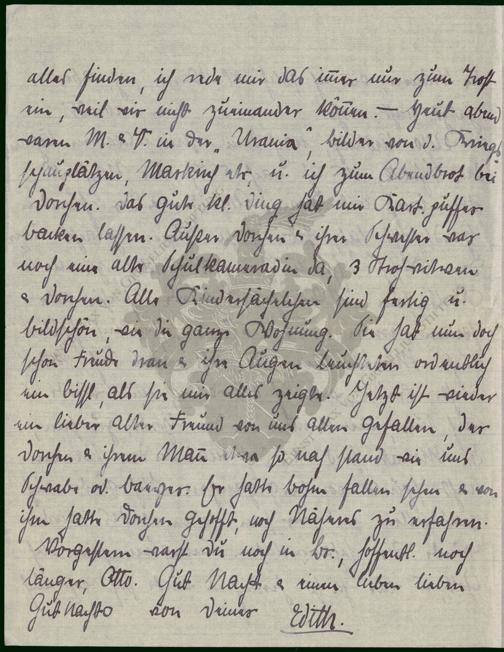 alles finden, ich rede mir das im̅er nur zum Trost
ein, weil wir nicht zueinander kön̅en. — Heut abend
waren M. & V. in der „Urania", bilder von d. Kriegs
schauplätzen, Markirch etc, u. ich zum Abendbrot bei
Dorchen. Das gute kl. Ding hat mir Kart. puffer
backen lassen. Außer Dorchen & ihrer Schwester war
noch eine alte Schulkameradin da, 3 Strohwitwen
& Dorchen. Alle Kindersächelchen sind fertig u.
bildschön, wie die ganze Wohnung. Sie hat nun doch
schon Freude dran & ihre Augen leuchteten ordentlich
ein bissl, als sie mir alles zeigte. Jetzt ist wieder
ein lieber alter Freund von uns allen gefallen, der
Dorchen & ihrem Man̅ etwa so nah stand wie uns
Schwabe od. . Er hatte fallen sehen & von
ihm hatte Dorchen gehofft, noch Näheres zu erfahren.
Vorgestern warst Du noch in br., hoffentl. noch
länger, Otto. Gut Nacht & einen lieben lieben
Gutnacht von Deiner Edith.